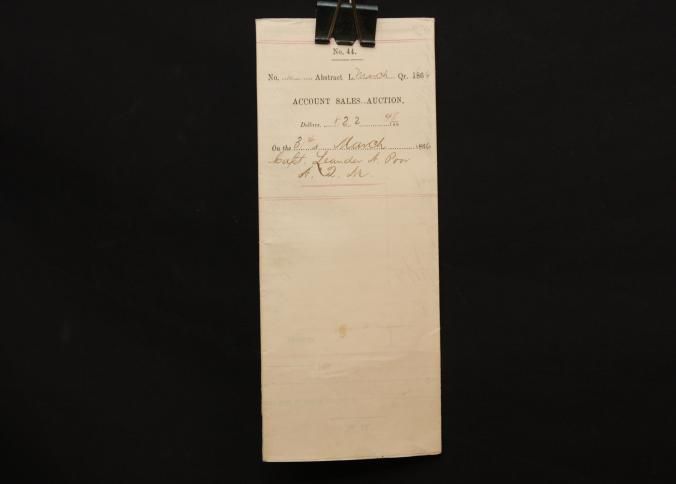 No. 44.
No. Abstract L. March Qr. 1866
ACCOUNT SALES AUCTION,
Dollars, 122 48/100
On the 3d of March 1866
Capt. Leander A. Poor
A. Q. M.